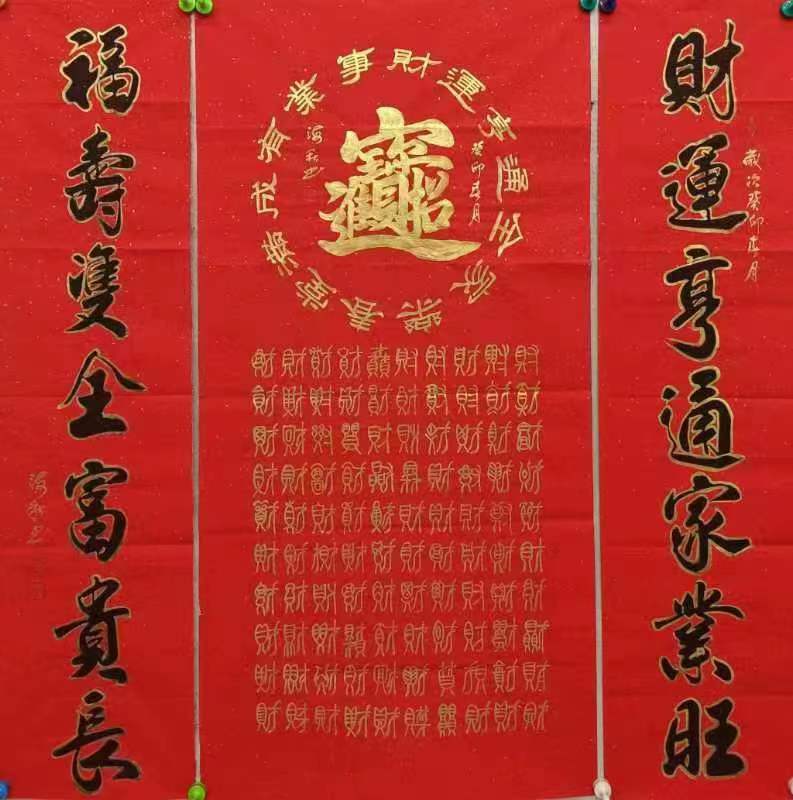 財運亨通家業旺
歲次癸卯春月
財運亨通全家樂
事業有成滿堂春
招財進寶
癸卯春月
財財財財財財財財財財
財財財財財財財財財財
財財財財財財財財財財
財財財財財財財財財財
財財財財財財財財財財
財財財財財財財財財財
財財財財財財財財財財
財財財財財財財財財財
財財財財財財財財財財
財財財財財財財財財財
福壽雙全富貴長